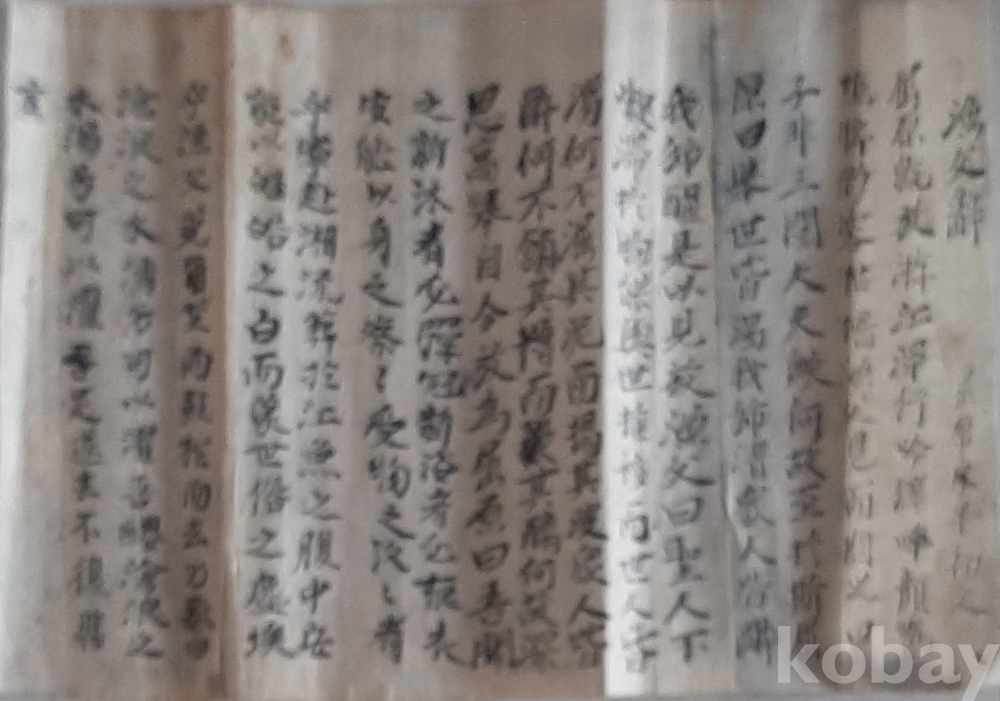 漁父辭
屈原既放游江潭行吟澤畔顏色
子非三閭大夫歟何故至於斯屈
原曰擧世皆濁我獨淸衆人皆醉
我獨醒是以見放漁父曰聖人不
凝滯於物能與世推移而世人皆
濁何不淈其泥而揚其波衆人皆
醉何不餔其糟而歠其醨何故深
思高擧自令放爲屈原曰吾聞
之新沐者必彈冠新浴者必振衣
安能以身之察〻受物之汶〻者
乎寧赴湘流葬於江魚之腹中安
能以皓皓之白而蒙世俗之塵埃
乎漁父莞爾笑而鼓枻而去乃歌曰
滄浪之水淸兮可以濯吾纓滄浪之
水濁兮可以濯吾足遂去不復與
言
kobay